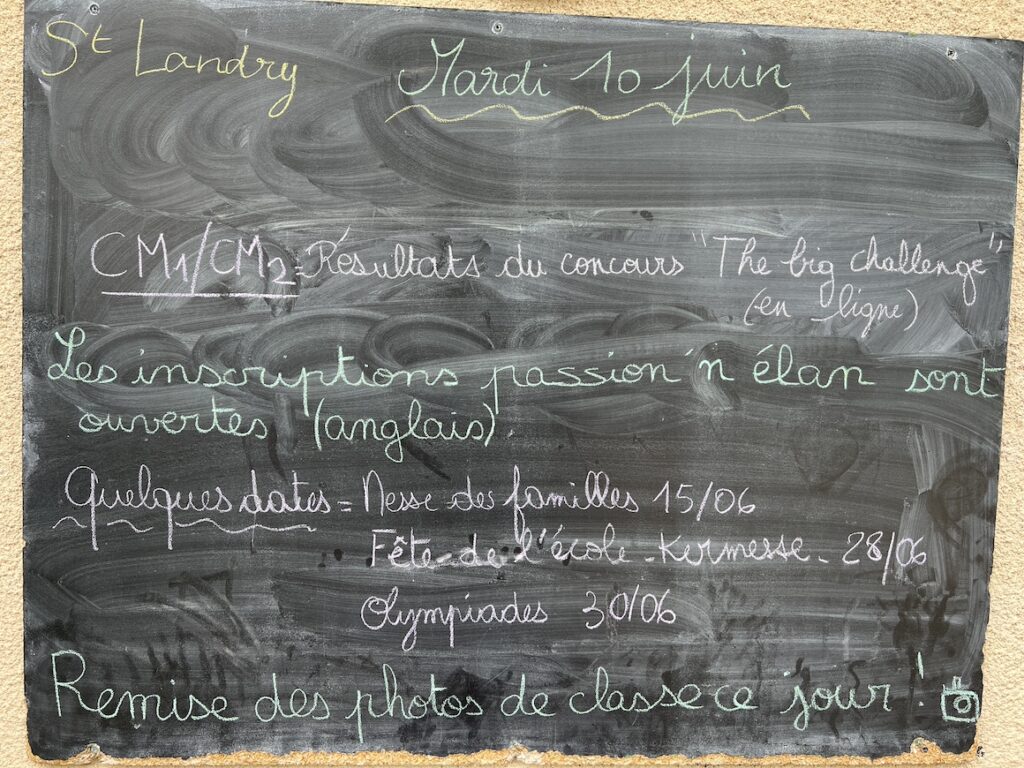 St Landry
Mardi 10 juin
CM1/CM2 = Résultats du concours "The big challenge"
(en ligne)
Les inscriptions passion'n élan sont
ouvertes (anglais).
Quelques dates = Messe des familles 15/06
Fête de l'école - Kermesse - 28/06
Olympiades 30/06
Remise des photos de classe ce jour !